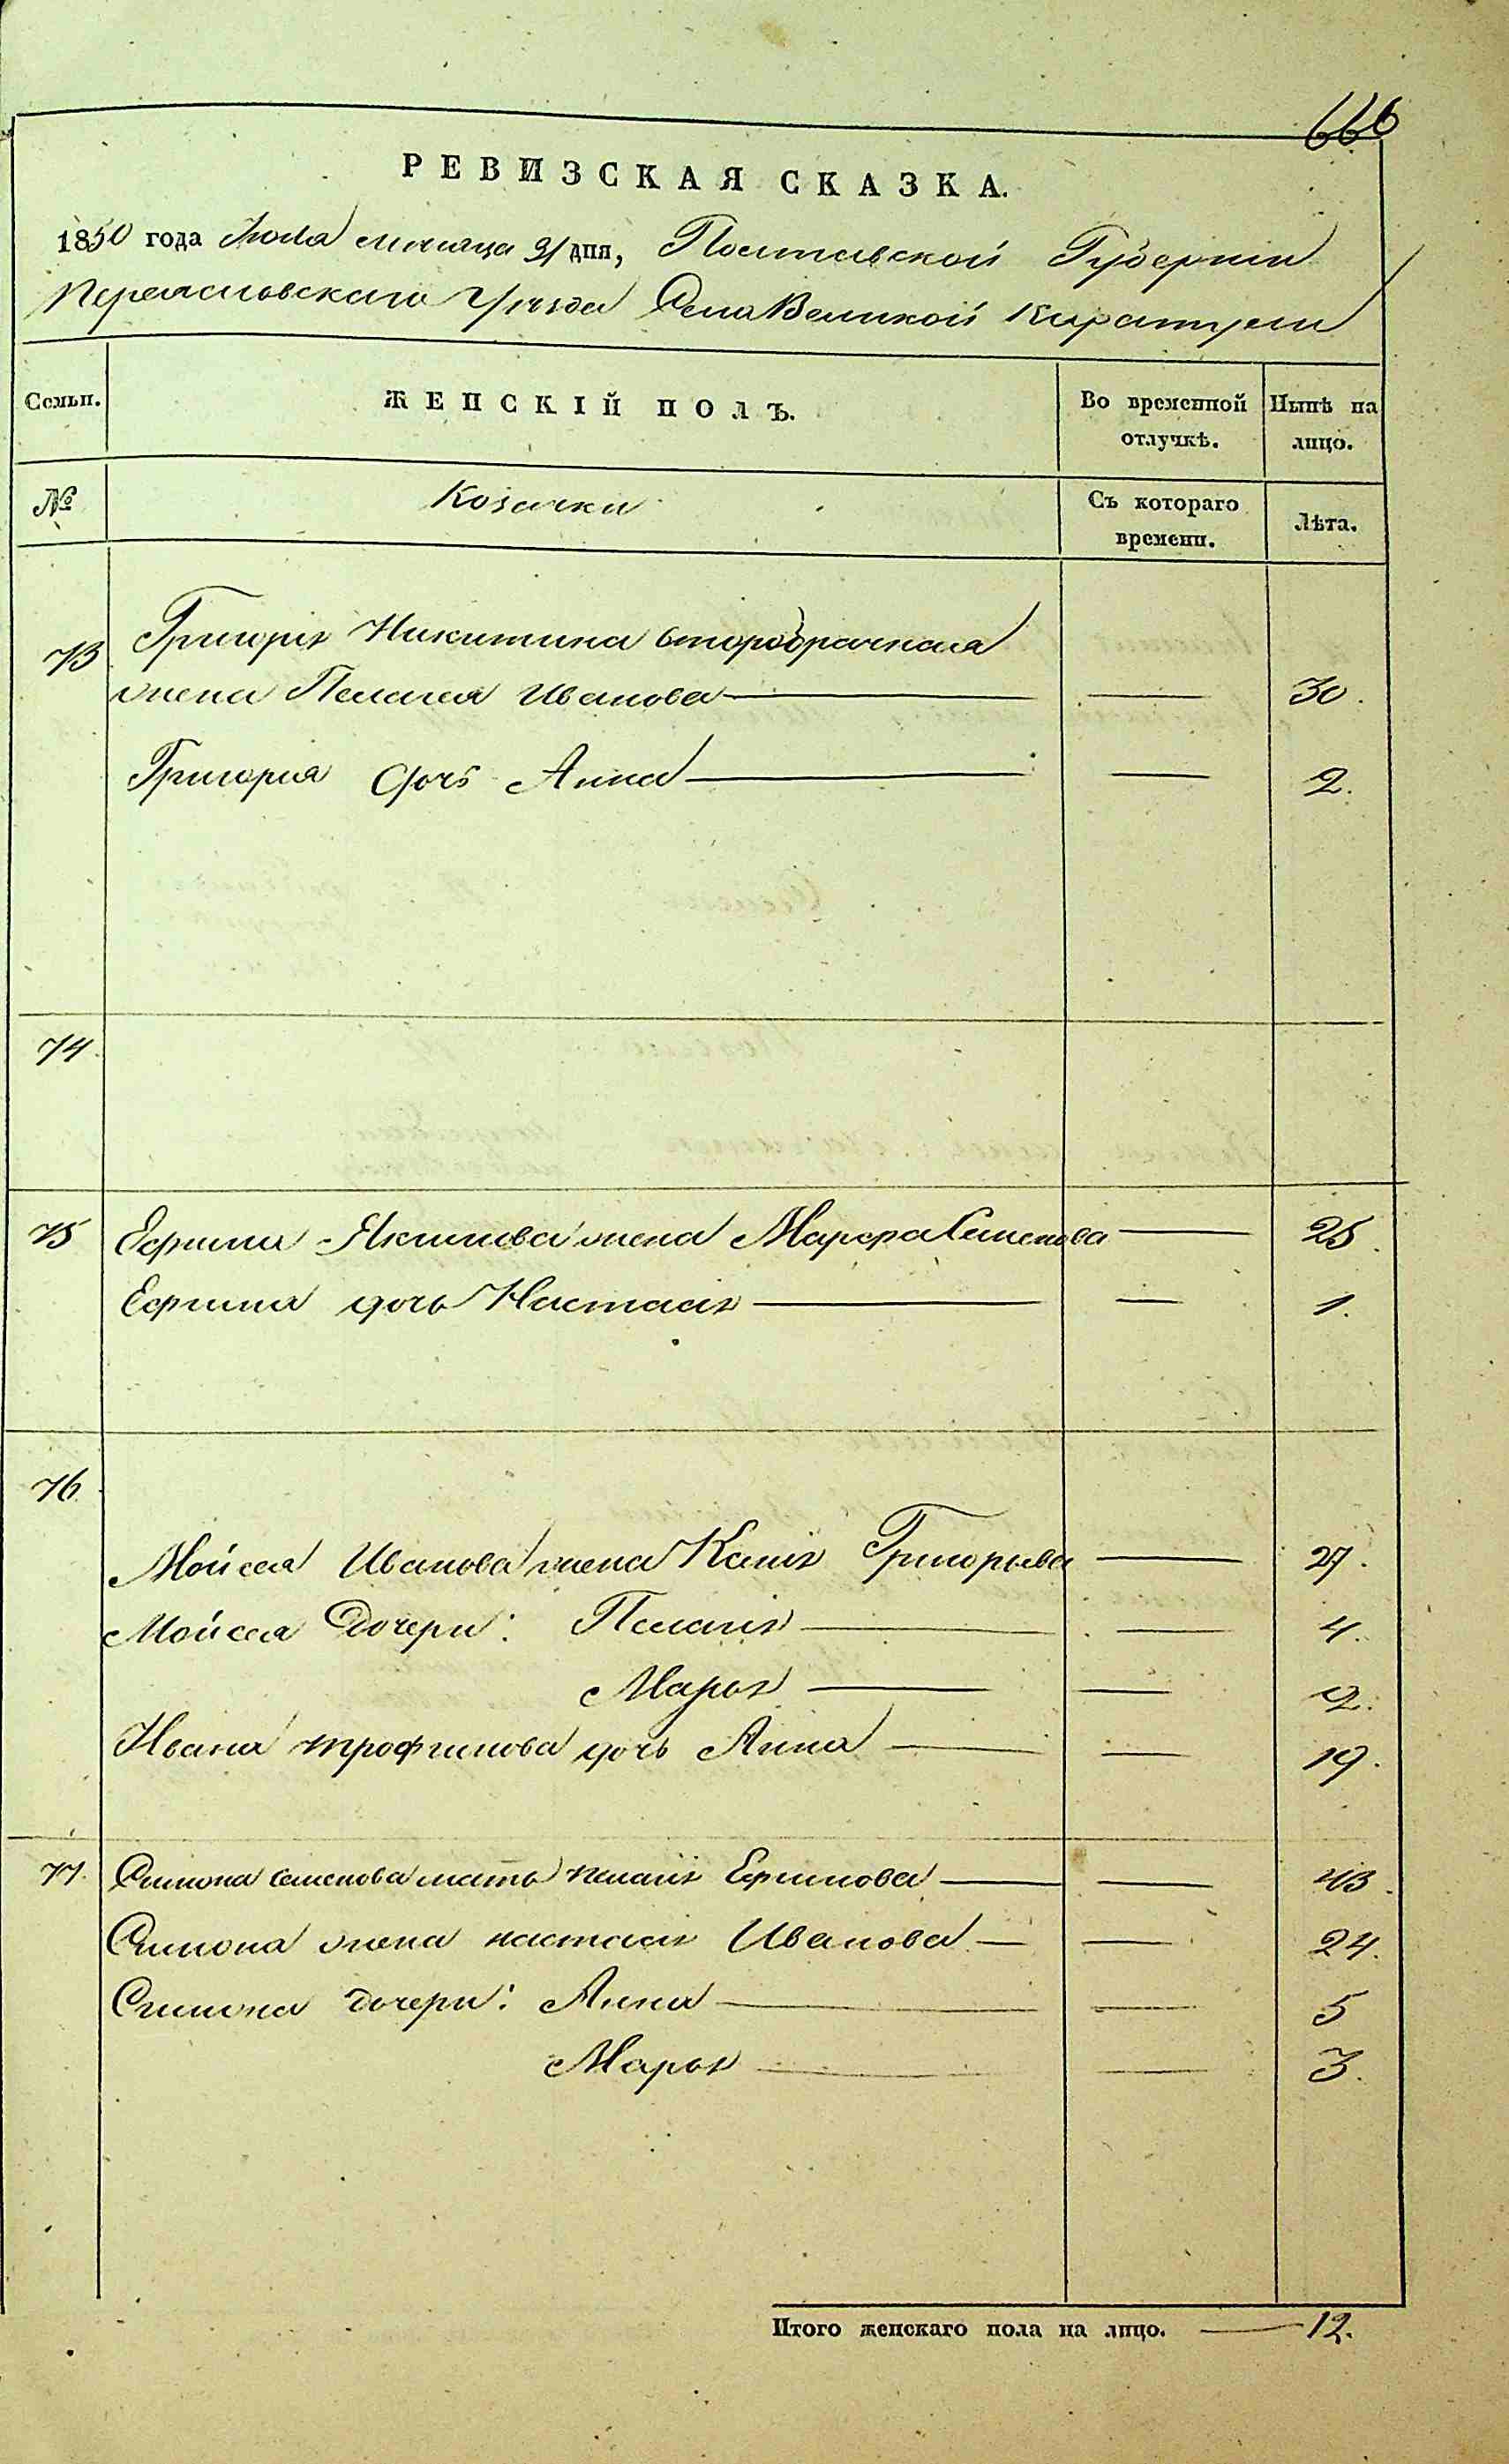 666
РЕВИЗСКАЯ СКАЗКА.
1850 года Июля месяца 31 дня, Полтавской Губернии
Переясловскаго Уѣзда Села Великой Каратули
Семьи. ЖЕНСКІЙ ПОЛЪ. Во временной отлучкѣ. Нынѣ на лицо.
№ Козачки Съ котораго времени. Лѣта.
73 Григорія Никитина второбрачная
жена Пелагея Иванова — — 30.
Григория дочь Анна — — 2.
74.
75 Ефима Якимова жена Марфа Семенова — 25.
Ефима дочь Настасія — — 1.
76
Мойсея Иванова жена Капія Григорьева — 27.
Мойсея Дочери: Пелагія — — 4.
Марья — — 2.
Ивана трофимова дочь Анна — — 19.
77. Симона семенова мать пелагія Ефимова — — 43.
Симона жена настасія Иванова — — 24.
Симона дочери: Анна — — 5
Марья — — 3.
Итого женскаго пола на лицо. — 12.